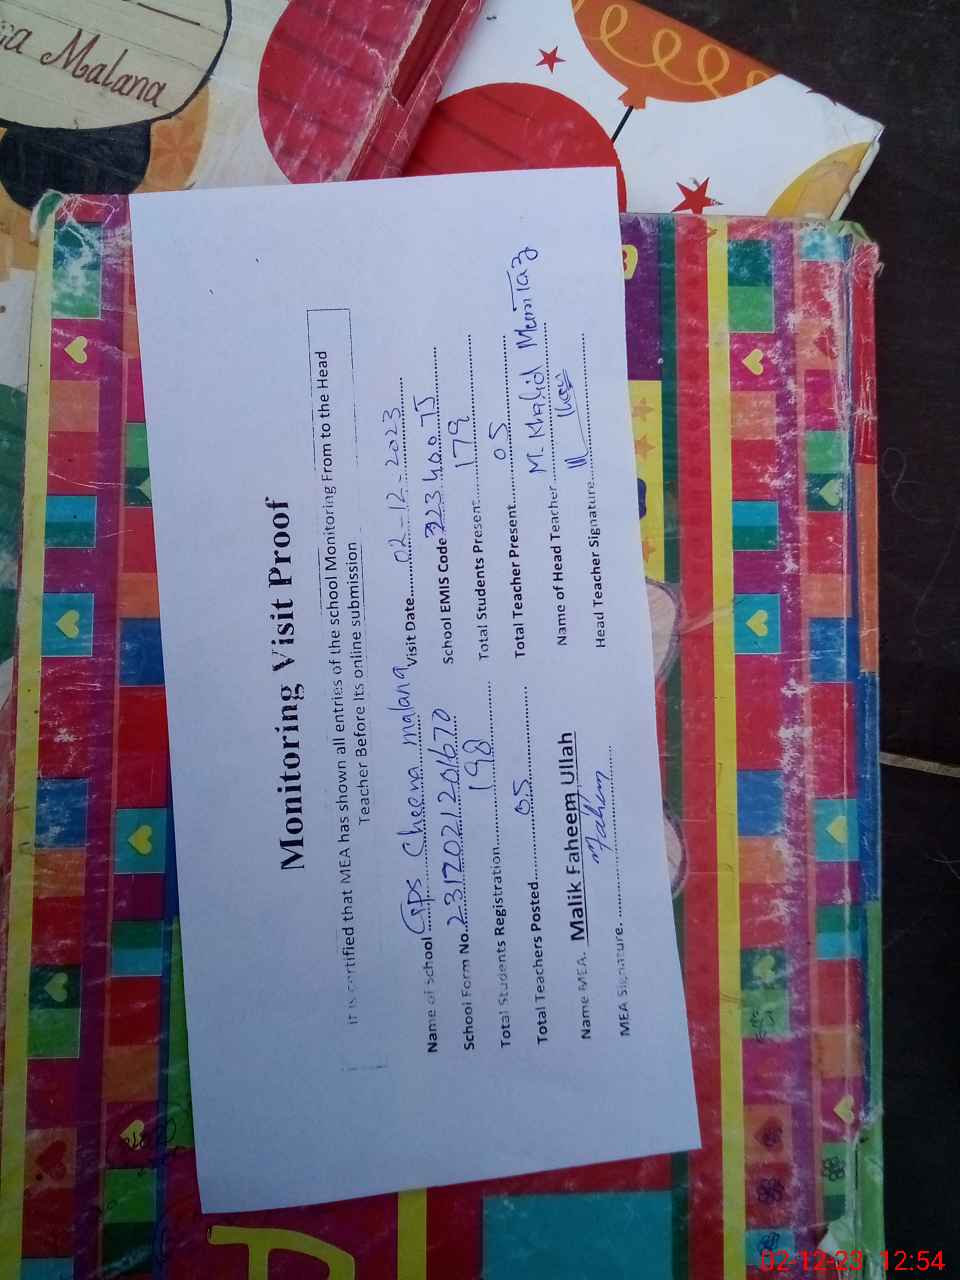 ia Malana
Monitoring Visit Proof
It is certified that MEA has shown all entries of the school Monitoring From to the Head
Teacher Before Its online submission
Name of School GPS Cheena malana Visit Date 02-12-2023
School Form No. 2312021201670 School EMIS Code 32340075
Total Students Registration 198 Total Students Present 179
Total Teachers Posted 05 Total Teacher Present 05
Name MEA. Malik Faheem Ullah Name of Head Teacher M. Khalid Mumtaz
MEA Signature. Fahem Head Teacher Signature
02-12-23 12:54